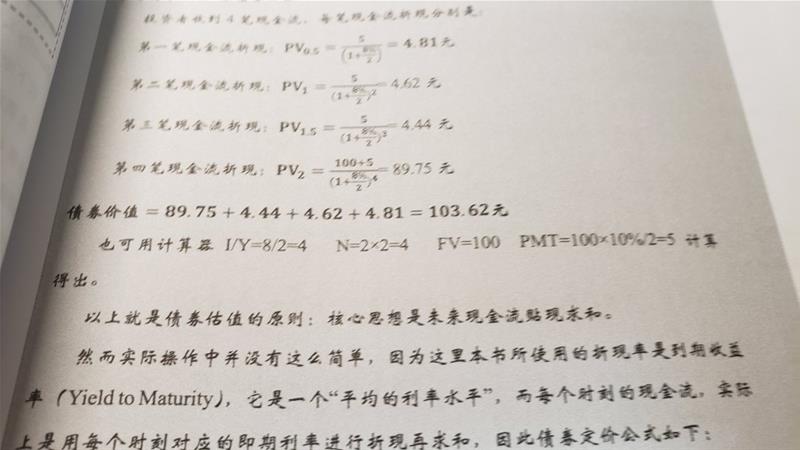 投资者收到 4 笔现金流，每笔现金流折现分别是：
第一笔现金流折现：PV₀.₅ = 5/(1+8%/2) = 4.81 元
第二笔现金流折现：PV₁ = 5/(1+8%/2)² = 4.62 元
第三笔现金流折现：PV₁.₅ = 5/(1+8%/2)³ = 4.44 元
第四笔现金流折现：PV₂ = 100+5/(1+8%/2)⁴ = 89.75 元
债券价值 = 89.75 + 4.44 + 4.62 + 4.81 = 103.62元
也可用计算器 I/Y=8/2=4 N=2×2=4 FV=100 PMT=100×10%/2=5 计算
得出。
以上就是债券估值的原则：核心思想是未来现金流贴现求和。
然而实际操作中并没有这么简单，因为这里本书所使用的折现率是到期收益
率（Yield to Maturity），它是一个“平均的利率水平”，而每个时刻的现金流，实际
上是用每个时刻对应的即期利率进行折现再求和，因此债券定价公式如下：